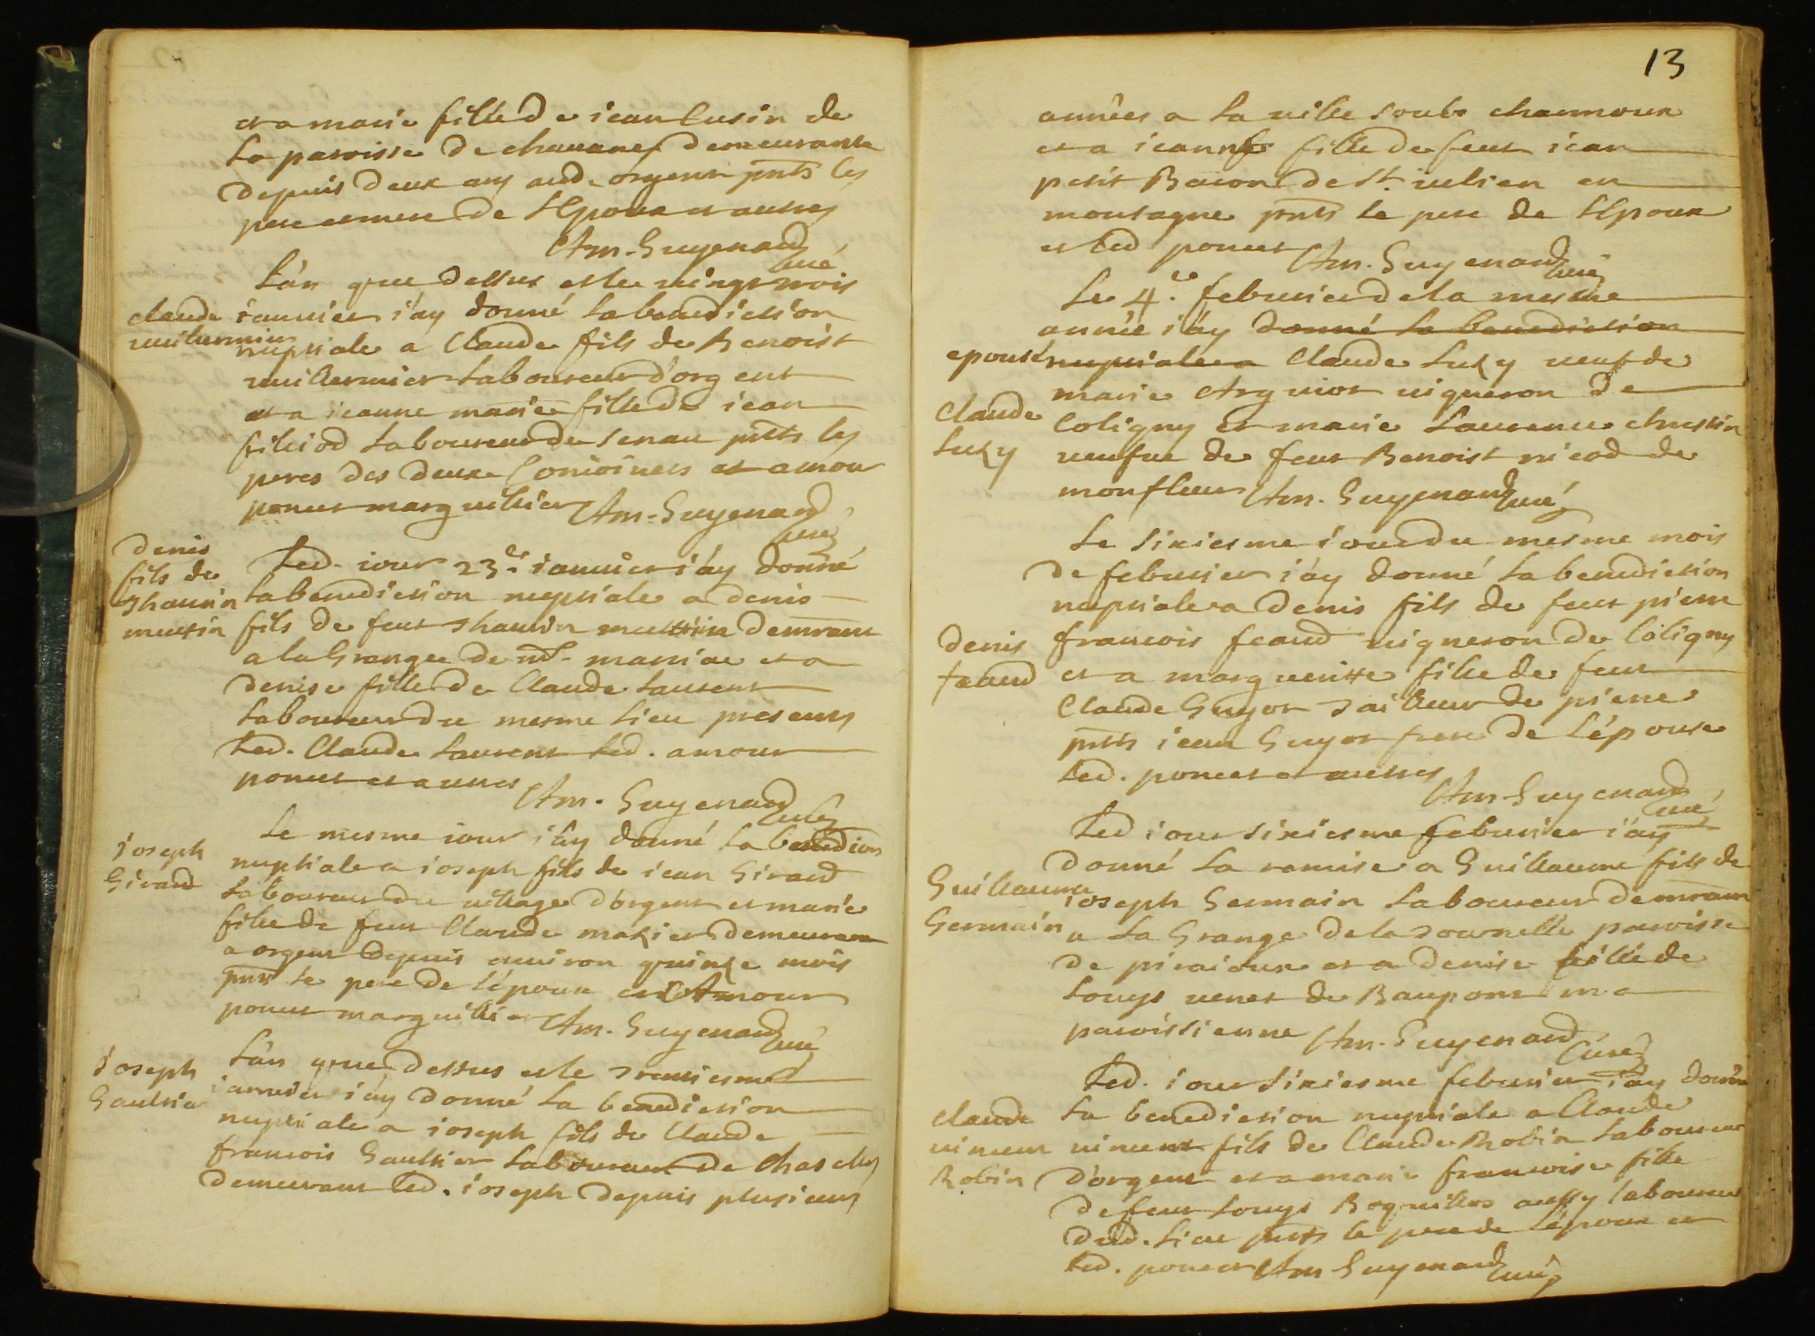 et a marie fille de iean Cusin de
la paroisse de chauanes demeurante
depuis deux ans aud. orgent pnts les
pere et mere de l'Epoux et autres
Am. Guyenard
curé
L'an que dessus et le vingt trois
claude
vuillermier
ianuier i'ay donné la benediction
nuptiale a Claude fils de Benoist
vuillermier laboureur d'orgent
et a ieanne marie fille de iean
filliod laboureur de senau pnts les
peres des deux Conioincts et amour
poncet marguillier Am. Guyenard
curé
denis
fils de
thauuin
mettin
Led. iour 23.e ianuier i'ay donné
la benediction nuptiale a denis
fils de feut thauuin demrant
a la Grange de mr. et a
denise fille de Claude laurent
laboureur du mesme lieu presents
Led. Claude laurent led. amour
poncet et autres Am. Guyenard
curé
ioseph
Girard
Le mesme iour i'ay donné la
nuptiale a ioseph fils de iean Girard
laboureur du village d'orgent et marie
fille de feut Claude demeurant
a orgent depuis enuiron quinze mois
pnts le pere de l'époux et Amour
poncet marguillier Am. Guyenard
curé
ioseph
Gaultier
L'an que dessus et le trentiesme
ianuier i'ay donné la benediction
nuptiale a ioseph fils de Claude
francois Gaultier laboureur de
demeurant led. ioseph depuis plusieurs
13
années a la ville soubs charmoux
et a ieanne fille de feut iean
petit Baron de St. iulien en
montagne pnts le pere de l'Epoux
et led poncet Am. Guyenard
curé
Le 4.e febvrier de la mesme
année i'ay donné la benediction
epousé nuptiale a Claude Luzy veuf de
Claude
Luzy
marie vigneron de
Coligny et marie Laurence
veufue de feut Benoist nicod de
monfleur Am. Guyenard curé
Le sixiesme iour du mesme mois
de febvrier i'ay donné la benediction
nuptiale a denis fils de feut pierre
denis
feaud
francois feaud vigneron de Coligny
et a margueritte fille de feut
Claude Guyot tailleur de pierre
pnts iean Guyot frere de l'épouse
led. poncet et autres
Am. Guyenard
curé
Led iour sixiesme febvrier i'ay
donné la remise a Guillaume fils de
Guillaume
Germain
ioseph Germain laboureur demrant
a la Grange de la tournelle paroisse
de et a denise fille de
Louys venet de Baupont ma
paroissienne Am. Guyenard
Curé
Led. iour sixiesme febvrier i'ay donné
la benediction nuptiale a Claude
claude
vincent
Robin
vincent fils de Claude Robin laboureur
d'orgent et a marie francoise fille
de feut Louys aussy laboureur
dud. lieu pnts le pere de l'époux et
led. poncet Am Guyenard curé